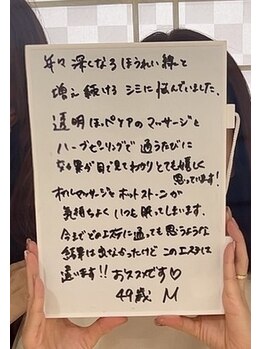 年々深くなるほうれい線と
増え続けるシミに悩んでいました。
透明ほっぺケアのマッサージと
ハーブピーリングで通うたびに
効果が目で見てわかりとても嬉しく
思っています!
オイルマッサージもホットストーンが
気持ちよくいつも眠ってしまいます。
今までどのエステに通っても思うような
結果は出なかったけどこのエステは
違います!!おススメです♡
49歳 M